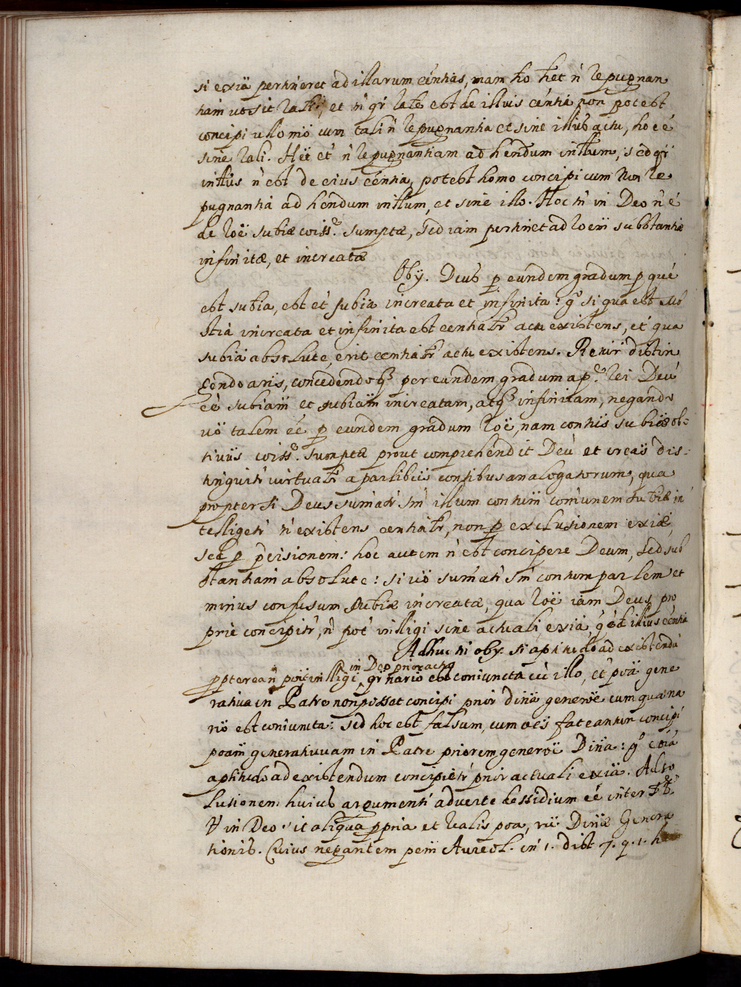 si exia pertineret ad illarum centias, nam ho het n̄ repugnan
tiam ut sit et n̄ qr late est de illius centia non potest
concipi ullo mo cum tali n̄ repugnantia et sine illius actu, ho e e
sine tali. Hie et n̄ repugnantiam ad hendum inttum, sed qr
inttus n̄ est de eius centia, potest homo concipi cum non re
pugnantia ad hendum inttum, et sine illo. Hoc tn in Deo n̄ e
de roe subiæ coiss. sumptæ, sed iam pertinet ad roem substantiæ
infinitæ, et increatæ
Obÿ. Deus p eundem gradum p quē
est subia, est et subia increata et infinita: g si qua est sub
stia increata et infinita est centiatr actu existens, et qua
subia absolute, erit centiatr actu existens. Renr distin
concedendoq per eandem gradum a p. rei Deū
ēē subiam et subiam increatam, atq infinitam, negando
uō talem ēē p eundem gradum roē, nam contus subiæ ob
tiuus coiss. sumptæ prout comprehendit Deū et creās dis
tinguitr virtualr a partibus contibus analogatorum, qua
propter si Deus sumatr sm illum contum comunem subiæ in
telligetr n̄ existens centiatr, non p exclusionem exiæ,
sed p pcisionem: hoc autem n̄ est concipere Deum, sed sub
stantiam absolute: si uō sumatr sm contum partem et
minus confusum subiæ increatæ, qua roē iam Deus pro
prie concipitr, n̄ pot intligi sine actuali exia, q est illius centia
Adhuc tn obÿ. si aptitudo ad existendū
in Deo prior actu
ppterea n̄ pōt intelligi qr nario est coniuncta cū illo, et poā gene
ratiua in Patre non posset concipi prior Dinā generōe cum qua na
rio est coniuncta: sed hoc est falsum, cum oēs fateantur concipi
poam generatiuam in Patre priorem generōē Dinā: g etiā
aptitudo ad existendum concipietr prior actuali exiā. Ad so
lutionem huius argumenti aduerte dissidium ēē inter
V in Deo sit aliqua ppria et realis poa, Dinæ Genera
tionis. Cuius negantem pem Aureol. in 1. dist 7. q. 1.